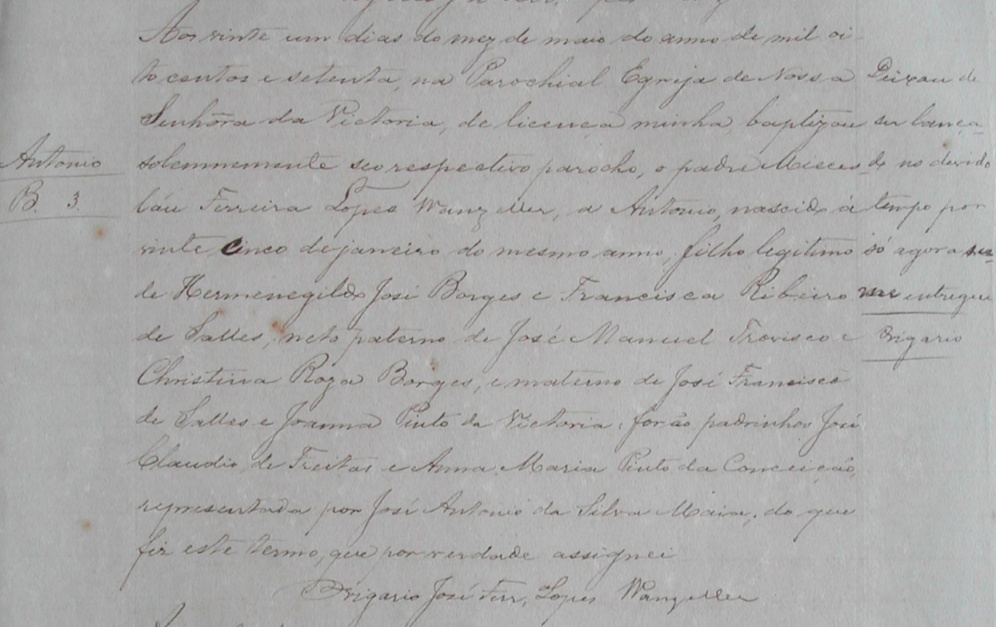 Antonio
B. 3.
Aos vinte um dias do mez de maio do anno de mil oi-
to centos e setenta, na Parochial Egreja de Nossa
Senhôra da Victoria, de licença minha, baptizou
solemnemente seo respectivo parocho, o padre Mieces-
láu Ferreira Lopes Wanzeller, a Antonio, nascido á
vinte cinco de janeiro do mesmo anno, filho legitimo
de Hermenegildo José Borges e Francisca Ribeiro
de Salles, neto paterno de José Manuel Trovisco e
Christina Roza Borges, e materno de José Francisco
de Salles e Joanna Pinto da Victoria: forão padrinhos José
Claudio de Freitas e Anna Maria Pinto da Conceição,
representada por José Antonio da Silva Maia; do que
fiz este termo, que por verdade assignei
O vigario José Ferr. Lopes Wanzeller
Deixou de
ser lança-
do no devido
tempo por
só agora
me entregue
O vigario